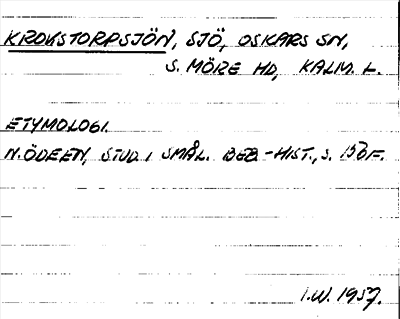 KROKSTORPSJÖN, SJÖ, OSKARS SN,
S. MÖRE HD, KALM. L.
ETYMOLOGI.
N. ÖDEEN, STUD. I SMÅL. BEB.-HIST., S. F.
I.W. 1957.